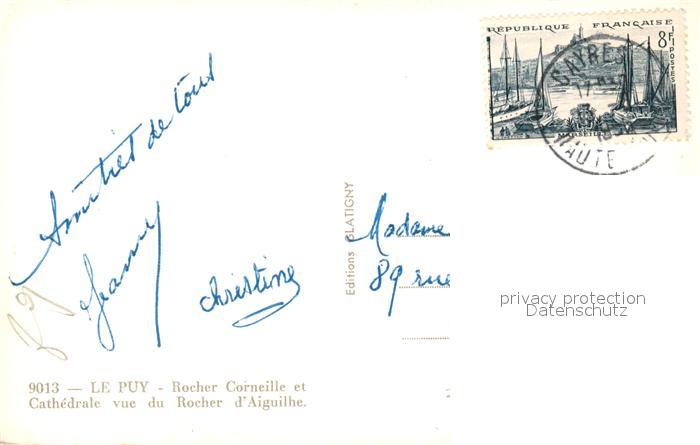 RÉPUBLIQUE FRANÇAISE
8F
POSTES
MARSEILLE
HAUTE
Amitiés de tous
Jeanny
Christine
Editions BLATIGNY
Madame
89 rue
privacy protection
Datenschutz
9013 — LE PUY - Rocher Corneille et
Cathédrale vue du Rocher d'Aiguilhe.